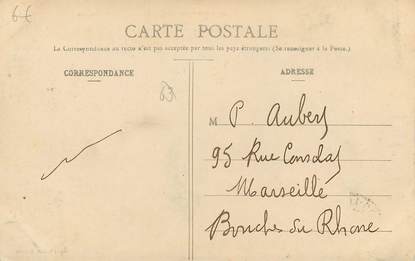 6€
CARTE POSTALE
La Correspondance au recto n'est pas acceptée par tous les pays étrangers (Se renseigner à la Poste.)
CORRESPONDANCE
ADRESSE
63
M P. Aubert
95 Rue Consolat
Marseille
Bouches du Rhone